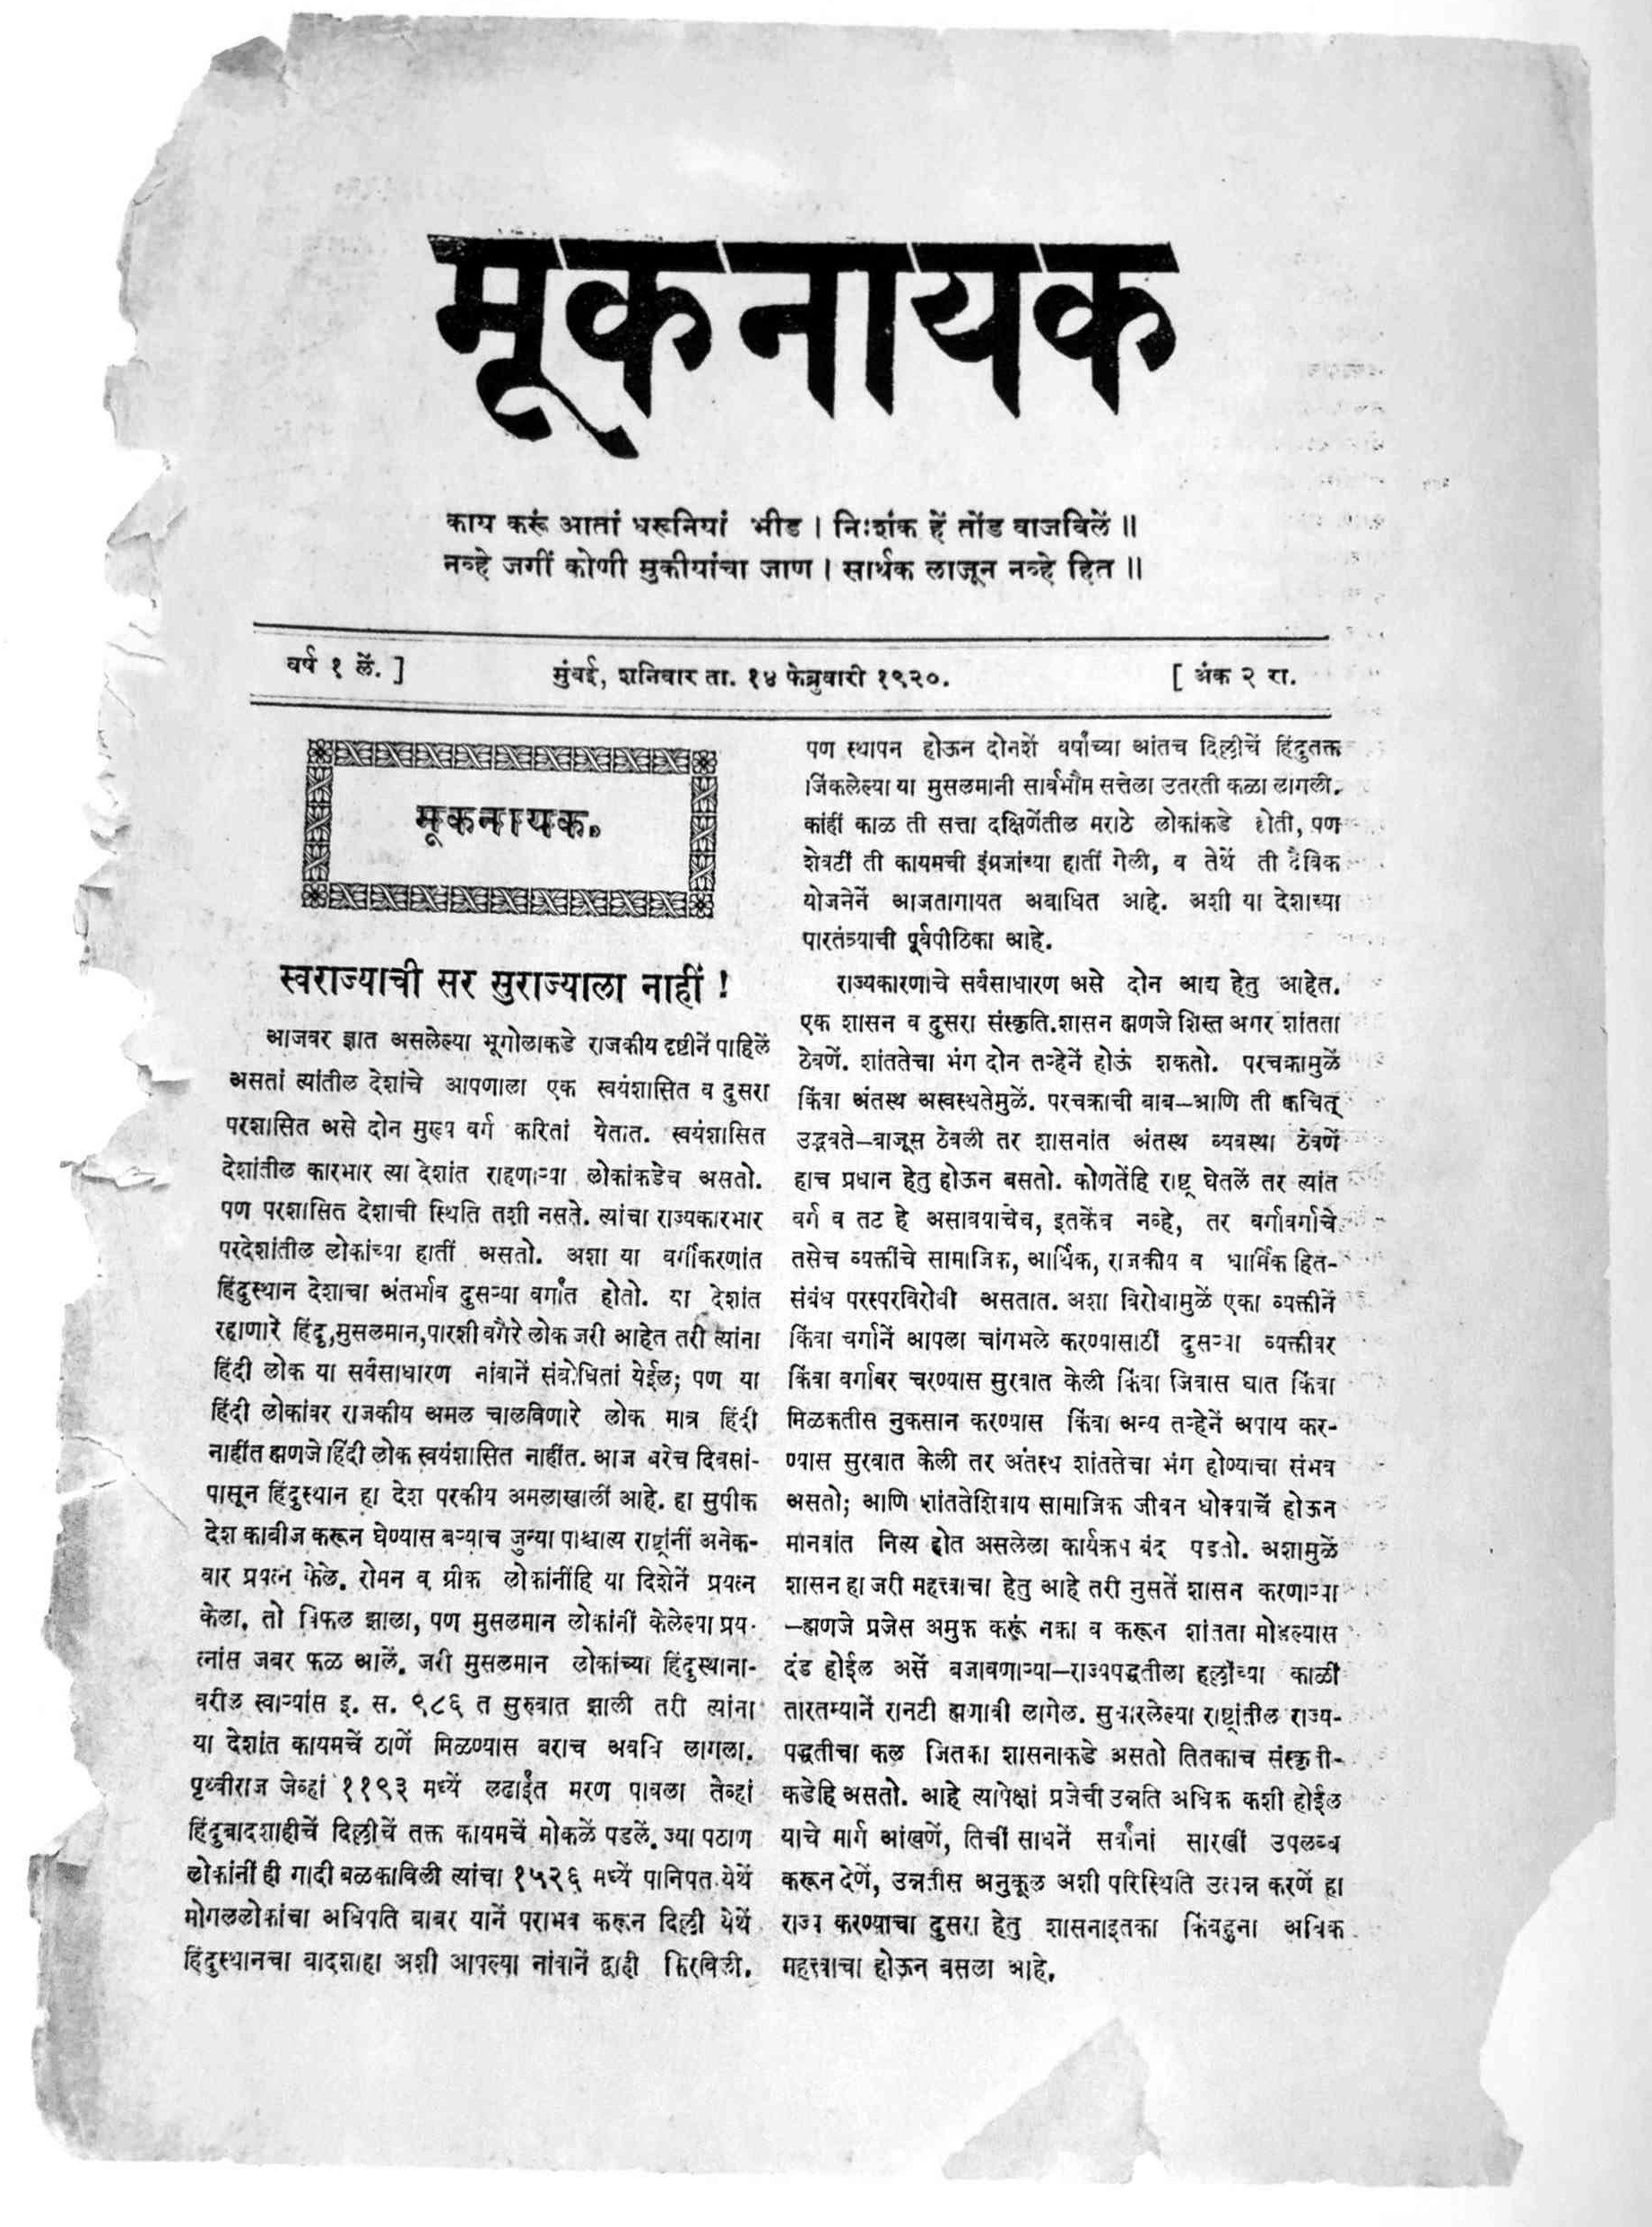 मूकनायक
काय करूं आतां धरूनियां भीड । निःशंक हें तोंड वाजविलें ॥
नव्हे जगीं कोणी मुकीयांचा जाण । सार्थक लाजून नव्हे हित ॥
वर्ष १ लें. ]
मुंबई, शनिवार ता. १४ फेब्रुवारी १९२०.
[ अंक २ रा.
मूकनायक.
स्वराज्याची सर सुराज्याला नाहीं !
आजवर ज्ञात असलेल्या भूगोलाकडे राजकीय दृष्टीनें पाहिलें
असतां त्यांतील देशांचे आपणाला एक स्वयंशासित व दुसरा
परशासित असे दोन मुख्य वर्ग करितां येतात. स्वयंशासित
देशांतील कारभार त्या देशांत राहणाऱ्या लोकांकडेच असतो.
पण परशासित देशाची स्थिति तशी नसते. त्यांचा राज्यकारभार
परदेशांतील लोकांच्या हातीं असतो. अशा या वर्गीकरणांत
हिंदुस्थान देशाचा अंतर्भाव दुसऱ्या वर्गांत होतो. या देशांत
रहाणारे हिंदु,मुसलमान,पारशी वगैरे लोक जरी आहेत तरी त्यांना
हिंदी लोक या सर्वसाधारण नांवानें संबोधितां येईल; पण या
हिंदी लोकांवर राजकीय अमल चालविणारे लोक मात्र हिंदी
नाहींत ह्मणजे हिंदी लोक स्वयंशासित नाहींत. आज बरेच दिवसां-
पासून हिंदुस्थान हा देश परकीय अमलाखालीं आहे. हा सुपीक
देश काबीज करून घेण्यास बऱ्याच जुन्या पाश्चात्य राष्ट्रांनीं अनेक-
वार प्रयत्न केले. रोमन व ग्रीक लोकांनींहि या दिशेनें प्रयत्न
केला. तो विफल झाला, पण मुसलमान लोकांनीं केलेल्या प्रय-
त्नांस जबर फळ आलें. जरी मुसलमान लोकांच्या हिंदुस्थाना-
वरील स्वाऱ्यांस इ. स. ९८६ त सुरुवात झाली तरी त्यांना
या देशांत कायमचें ठाणें मिळण्यास बराच अवधि लागला.
पृथ्वीराज जेव्हां ११९३ मध्यें लढाईंत मरण पावला तेव्हां
हिंदुबादशाहीचें दिल्लीचें तक्त कायमचें मोकळें पडलें. ज्या पठाण
लोकांनीं ही गादी बळकाविली त्यांचा १५२६ मध्यें पानिपत येथें
मोगललोकांचा अधिपति बाबर यानें पराभव करून दिल्ली येथें
हिंदुस्थानचा बादशाहा अशी आपल्या नांवानें द्वाही फिरविली.
पण स्थापन होऊन दोनशें वर्षांच्या आंतच दिल्लीचें हिंदुतक्त
जिंकलेल्या या मुसलमानी सार्वभौम सत्तेला उतरती कळा लागली.
कांहीं काळ ती सत्ता दक्षिणेंतील मराठे लोकांकडे होती, पण
शेवटीं ती कायमची इंग्रजांच्या हातीं गेली, व तेथें ती दैविक
योजनेनें आजतागायत अबाधित आहे. अशी या देशाच्या
पारतंत्र्याची पूर्वपीठिका आहे.
राज्यकारणाचे सर्वसाधारण असे दोन आद्य हेतु आहेत.
एक शासन व दुसरा संस्कृति.शासन ह्मणजे शिस्त अगर शांतता
ठेवणें. शांततेचा भंग दोन तऱ्हेनें होऊं शकतो. परचक्रामुळें
किंवा अंतस्थ अस्वस्थतेमुळें. परचक्राची बाब—आणि ती क्वचित्
उद्भवते—बाजूस ठेवली तर शासनांत अंतस्थ व्यवस्था ठेवणें
हाच प्रधान हेतु होऊन बसतो. कोणतेंहि राष्ट्र घेतलें तर त्यांत
वर्ग व तट हे असावयाचेच, इतकेंच नव्हे, तर वर्गावर्गाचे
तसेच व्यक्तींचे सामाजिक, आर्थिक, राजकीय व धार्मिक हित-
संबंध परस्परविरोधी असतात. अशा विरोधामुळें एका व्यक्तीनें
किंवा वर्गानें आपला चांगभले करण्यासाठीं दुसऱ्या व्यक्तीवर
किंवा वर्गावर चरण्यास सुरवात केली किंवा जिवास घात किंवा
मिळकतीस नुकसान करण्यास किंवा अन्य तऱ्हेनें अपाय कर-
ण्यास सुरवात केली तर अंतस्थ शांततेचा भंग होण्याचा संभव
असतो; आणि शांततेशिवाय सामाजिक जीवन धोक्याचें होऊन
मानवांत नित्य होत असलेला कार्यक्रम बंद पडतो. अशामुळें
शासन हा जरी महत्त्वाचा हेतु आहे तरी नुसतें शासन करणाऱ्या
—ह्मणजे प्रजेस अमुक करूं नका व करून शांतता मोडल्यास
दंड होईल असें बजावणाऱ्या—राज्यपद्धतीला हल्लींच्या काळीं
तारतम्यानें रानटी ह्मणावी लागेल. सुधारलेल्या राष्ट्रांतील राज्य-
पद्धतीचा कल जितका शासनाकडे असतो तितकाच संस्कृती-
कडेहि असतो. आहे त्यापेक्षां प्रजेची उन्नति अधिक कशी होईल
याचे मार्ग आंखणें, तिचीं साधनें सर्वांनां सारखीं उपलब्ध
करून देणें, उन्नतीस अनुकूल अशी परिस्थिति उत्पन्न करणें हा
राज्य करण्याचा दुसरा हेतु शासनाइतका किंबहुना अधिक
महत्त्वाचा होऊन बसला आहे.